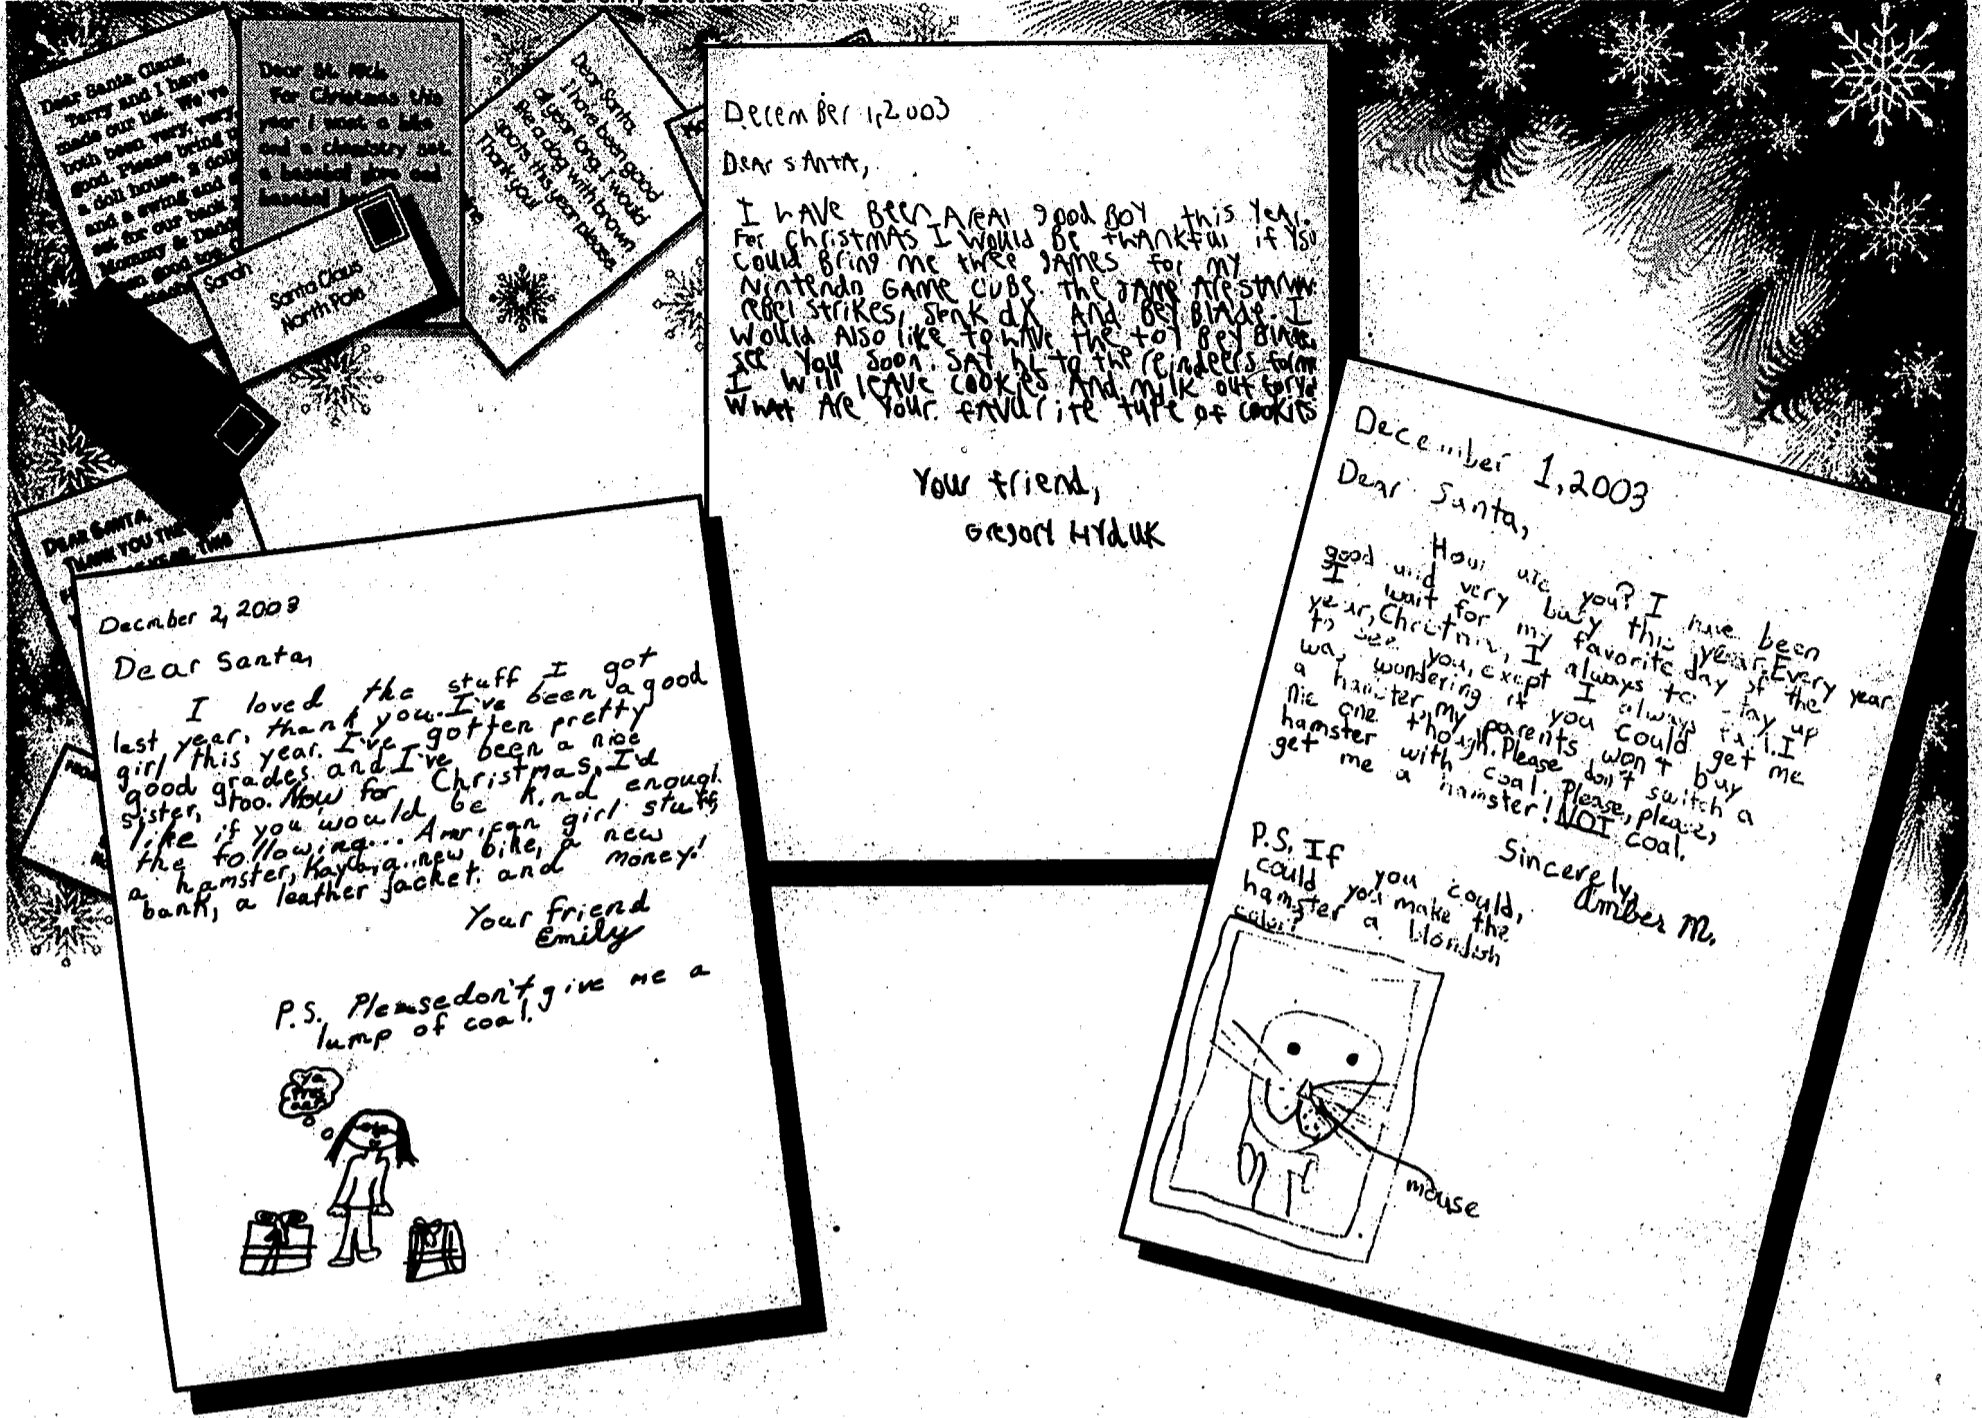 Dear Santa Claus,
Terry and I have
made our list. We've
both been very, very
good. Please bring
a doll house, 2 dolls
and a swing and
set for our back
Mommy & Daddy
good too.
Dear St. Nick
For Christmas this
year i want a bike
and a chemistry set,
a baseball glove and
baseball
Dear Santa,
I have been good
all year long. I would
like a dog with brown
spots this year please.
Thank you!
Sarah
Santa Claus
North Pole
DEAR SANTA,
THANK YOU
December 1, 2003
Dear SAntA,
I hAVE BEEN A reAl good Boy this Year.
For ChristmAs I Would BE thANKful if You
Could Bring me three gAmes for my
Nintendo GAME CUBE. the gAme Are
rebel strikes, Sonk dX And Bey BlAde. I
Would Also like to hAVE the toy Bey
see You Soon. SAY hi to the reindeers for me
I Will leAve cookies And milk out for
WhAt Are Your fAvurite type of cookies
Your friend,
Gregory HYdUK
Decmber 2, 2003
Dear Santa,
I loved the stuff I got
last year, thank you. I've been a good
girl this year. I've gotten pretty
good grades and I've been a nice
sister, too. Now for Christmas, I'd
like if you would be kind enough
the following... American girl stuff,
a hamster, Kayla, a new bike, a new
bank, a leather jacket. and money!
Your friend
Emily
P.S. Please don't give me a
lump of coal.
December 1, 2003
Dear Santa,
How are you? I have been
good and very busy this year. Every year
I wait for my favorite day of the
year, Christmas, I always to stay up
to see you, exept I always fail. I
was wondering if you could get me
a hamster, my parents won't buy
me one though. Please don't switch a
hamster with coal. Please, please,
get me a hamster! NOT coal.
Sincerely,
Amber M.
P.S. If you could,
could you make the
hamster a blondish
color?
mouse